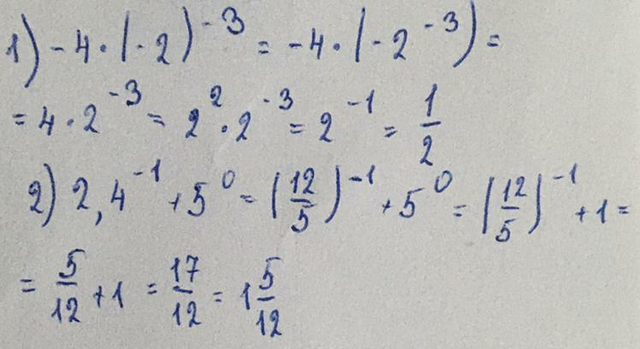 1) -4·(-2)⁻³ = -4·(-2⁻³) =
= 4·2⁻³ = 2²·2⁻³ = 2⁻¹ = 1/2
2) 2,4⁻¹ + 5⁰ = (12/5)⁻¹ + 5⁰ = (12/5)⁻¹ + 1 =
= 5/12 + 1 = 17/12 = 1 5/12